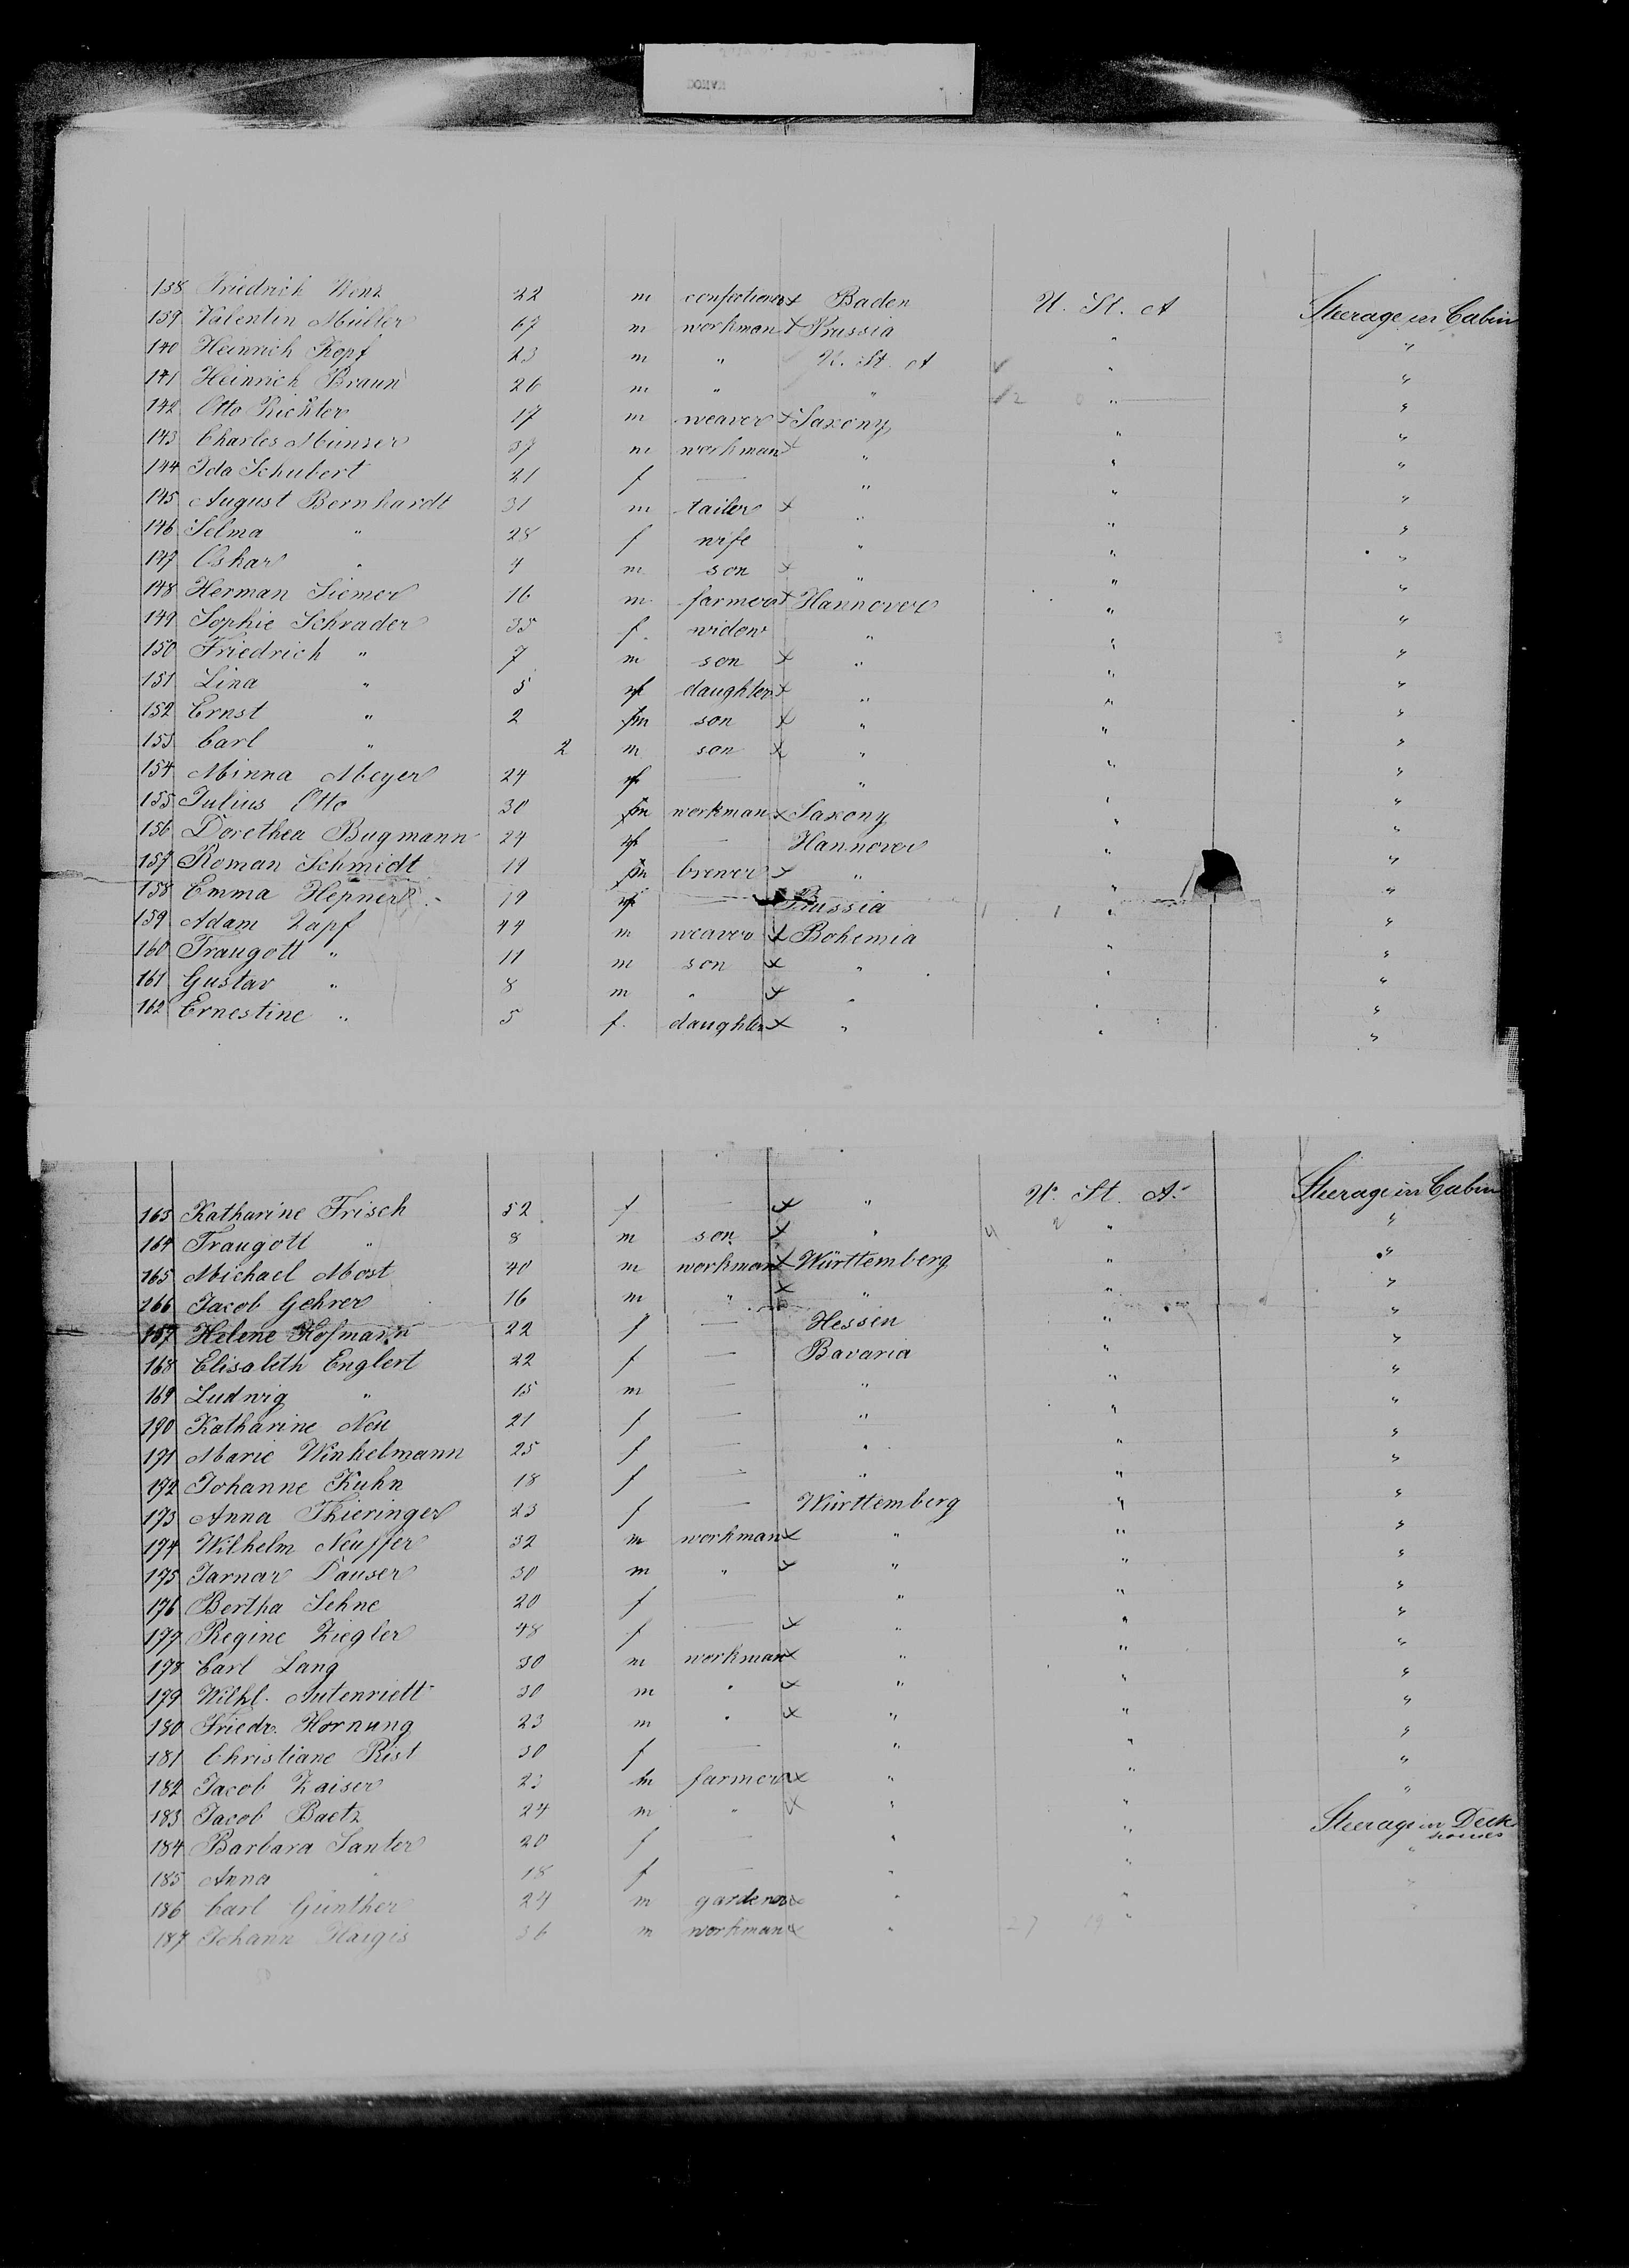 138 Friedrich Wenz 22 m confectioner x Baden U. St. A Steerage in Cabin
139 Valentin Müller 67 m workman x Prussia " "
140 Heinrich Kopf 23 m " U. St. A " "
141 Heinrich Braun 26 m " " " "
142 Otto Richter 17 m weaver x Saxony " "
143 Charles Münzer 37 m workman x " " "
144 Ida Schubert 21 f — " " "
145 August Bernhardt 31 m tailor x " " "
146 Selma " 28 f wife " " "
147 Oskar " 4 m son x " " "
148 Herman Siemer 16 m farmer x Hannover " "
149 Sophie Schrader 35 f. widow " " "
150 Friedrich " 7 m son x " " "
151 Lina " 5 f daughter x " " "
152 Ernst " 2 m son x " " "
153 Carl " 2 m son x " " "
154 Minna Meyer 24 f — " " "
155 Julius Otto 30 m workman x Saxony " "
156 Dorethea Bugmann 24 f — Hannover " "
157 Roman Schmidt 19 m brewer x " " "
158 Emma Hepner 19 f — Prussia " "
159 Adam Zapf 44 m weaver x Bohemia " "
160 Traugott " 11 m son x " " "
161 Gustav " 8 m " x " " "
162 Ernestine " 5 f. daughter x " " "
163 Katharine Frisch 52 f x " U. St. A. Steerage in Cabin
164 Traugott " 8 m son x " " "
165 Michael Most 40 m workman x Württemberg " "
166 Jacob Gehrer 16 m " x " " "
167 Helene Hofmann 22 f — Hessen " "
168 Elisabeth Englert 22 f — Bavaria " "
169 Ludwig " 15 m — " " "
170 Katharine Neu 21 f — " " "
171 Marie Winkelmann 25 f — " " "
172 Johanne Kuhn 18 f — " " "
173 Anna Thieringer 23 f — Württemberg " "
174 Wilhelm Neuffer 32 m workman x " " "
175 Jarnar Dauser 30 m " x " " "
176 Bertha Sehne 20 f — " " "
177 Regine Ziegler 48 f — x " " "
178 Carl Lang 30 m workman x " " "
179 Wilhl. Autenriett 30 m " x " " "
180 Friedr. Hornung 23 m " x " " "
181 Christiane Rist 30 f — " " "
182 Jacob Kaiser 23 m farmer x " " "
183 Jacob Baetz 24 m " x " " Steerage in Deck houses
184 Barbara Santer 20 f — " " "
185 Anna " 18 f — " " "
186 Carl Günther 24 m gardener x " " "
187 Johann Haigis 36 m workman x " "